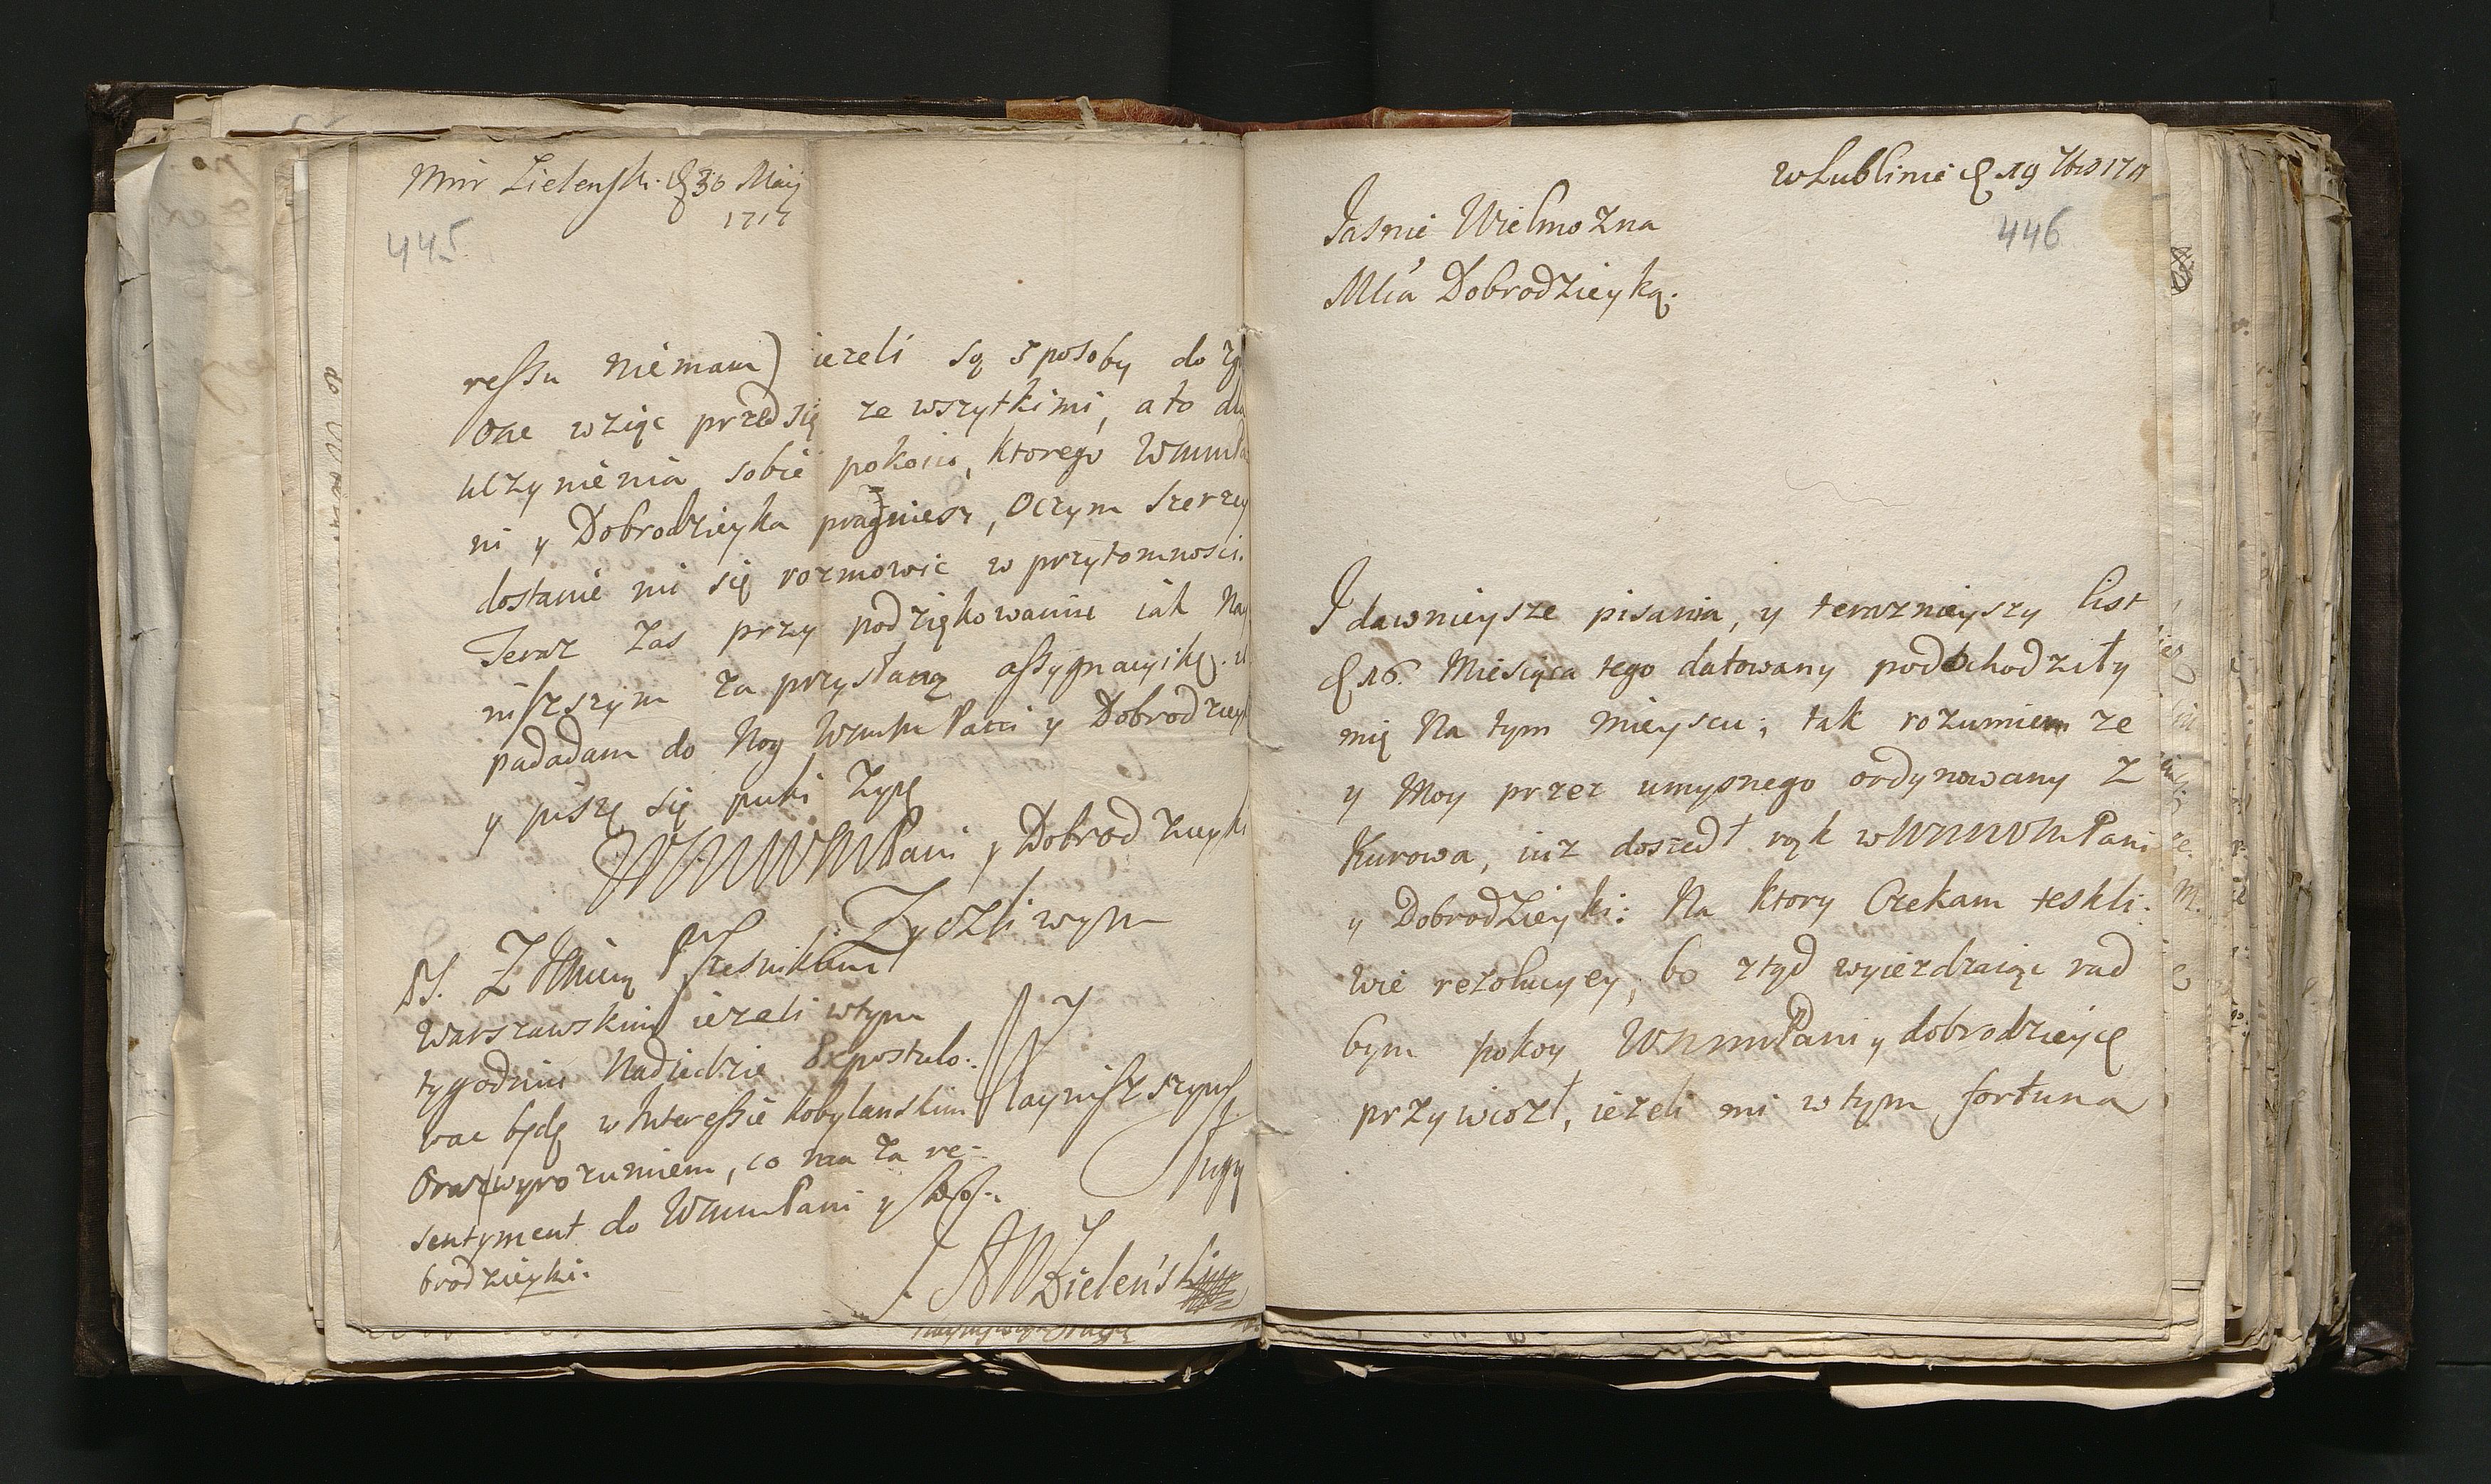 Mnr Zielenski d 30 Maij
1717
445
ressu niemam) iezeli są sposoby do
one wziąc przedsię ze wszytkimi, a to dla
uczynienia sobie pokoiu, ktorego
ni y Dobrodzieyka pragniesz, Oczym szerzey
dostanie mi się rozmowic w przytomnosci.
Teraz zas przy podziękowaniu iak Nay
niszszym za przysłaną assygnacyikę.
padadam do Nog Wmm Pani y Dobrodzieyki
y piszę się puki Zyię
WMMWM Pani y Dobrodzieyki
Zyczliwym
PS. Z
Warszawskim iezeli wtym
tygodniu Nadiedzie Expostulo:
wac będę w Interessie kobylanskim
Oraz wyrozumiem, co ma za re-
sentyment do WmmPani y Do:
brodzieyki.
y
Nayniszszym
Sługą
Zieleński
wLublinie d 19 7bris 171
446
Jasnie Wielmozna
Mcia Dobrodzieyką.
I dawnieysze pisania, y teraznieyszy list
d 16. Miesiąca tego datowany podchodziły
mię Na tym mieyscu; tak rozumiem ze
y Moy przez umysnego ordynowany Z
Kurowa, iuz doszedł rąk w WMMWM Pani
y Dobrodzieyki: Na ktory Czekam teskli:
wie rezolucyey, bo ztąd wyiezdzaiąc rad
bym pokoy WmmPani y dobrodzieyce
przywiozł, iezeli mi w tym fortuna